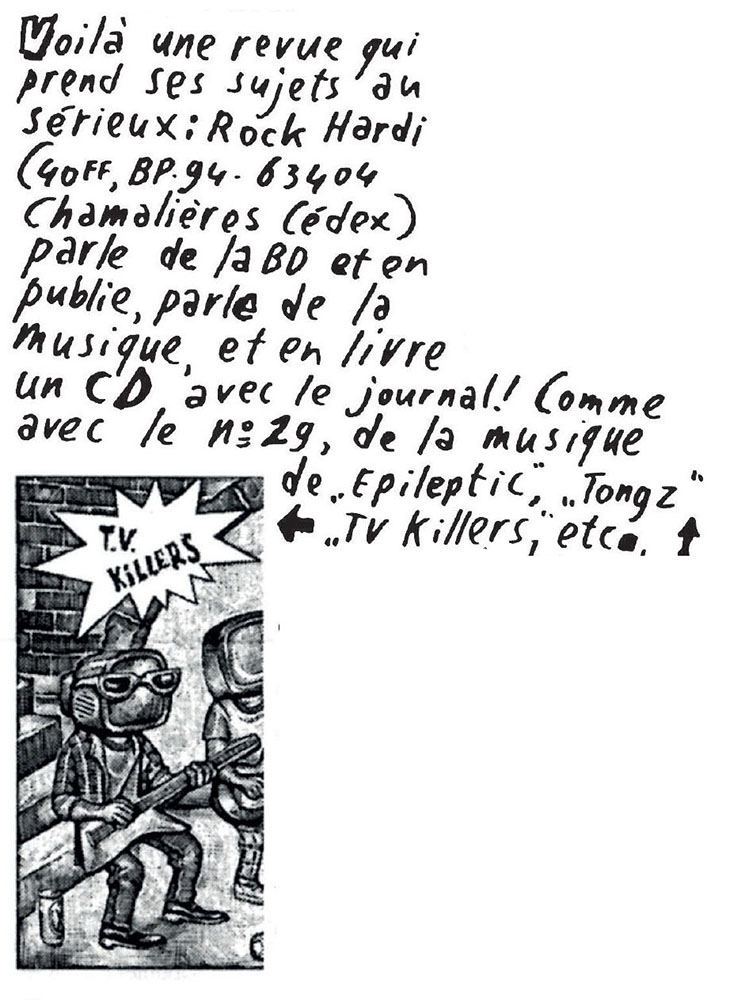 Voilà une revue qui
prend ses sujets au
sérieux: Rock Hardi
(40FF, BP.94. 63404
Chamalières Cédex)
parle de la BD et en
publie, parle de la
musique, et en livre
un CD avec le journal! Comme
avec le nº29, de la musique
de „Epileptic“, „Tongz“
← „TV Killers,“ etc. ↑
T.V.
KiLLERS